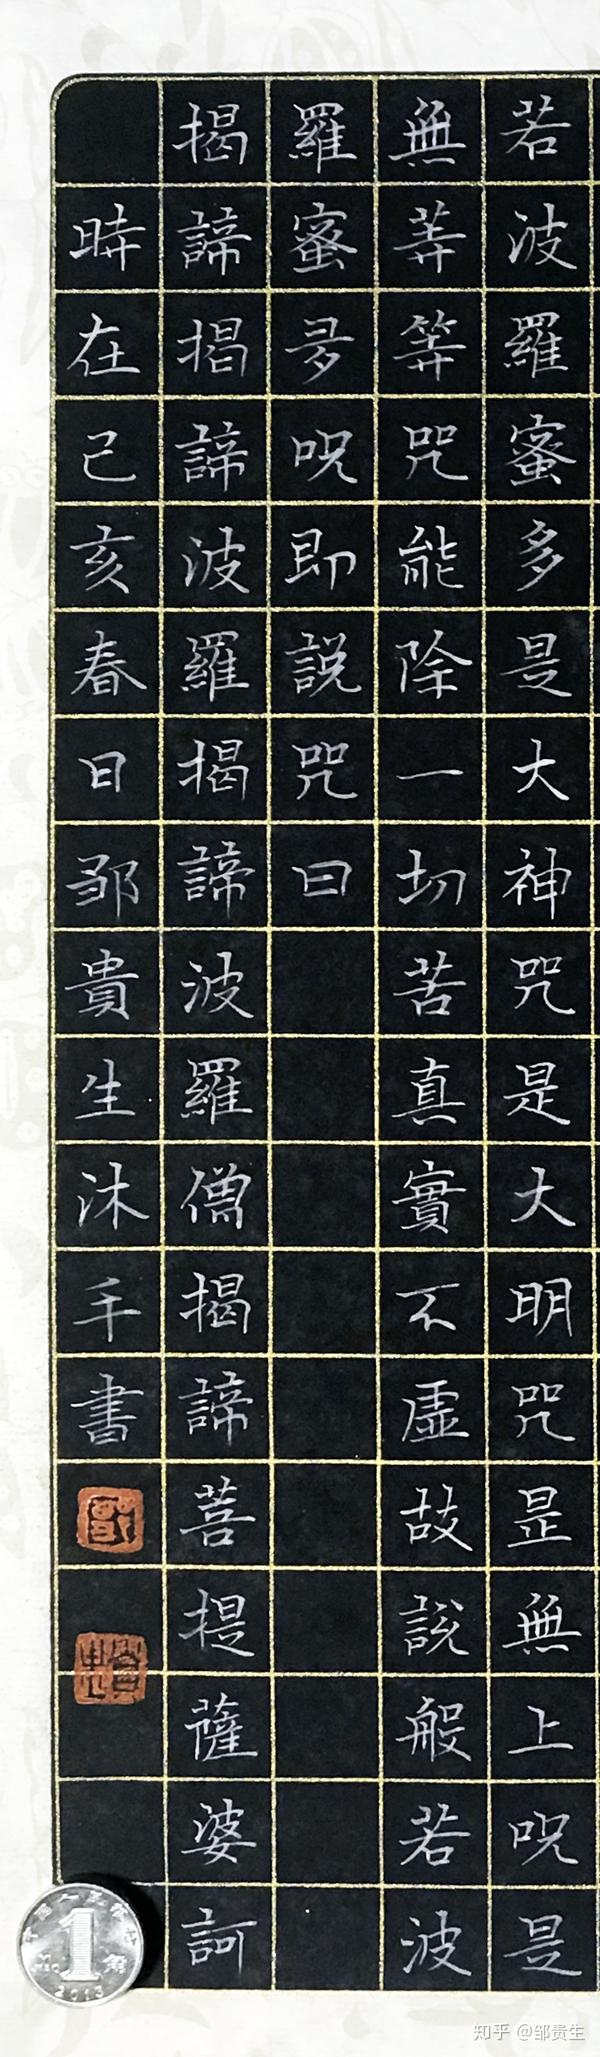 若波羅蜜多是大神咒是大明咒是無上呪是
無等等咒能除一切苦真實不虛故說般若波
羅蜜多呪即説咒曰
揭諦揭諦波羅揭諦波羅僧揭諦菩提薩婆訶
時在己亥春日邹貴生沐手書
1角
2013
知乎 @邹贵生